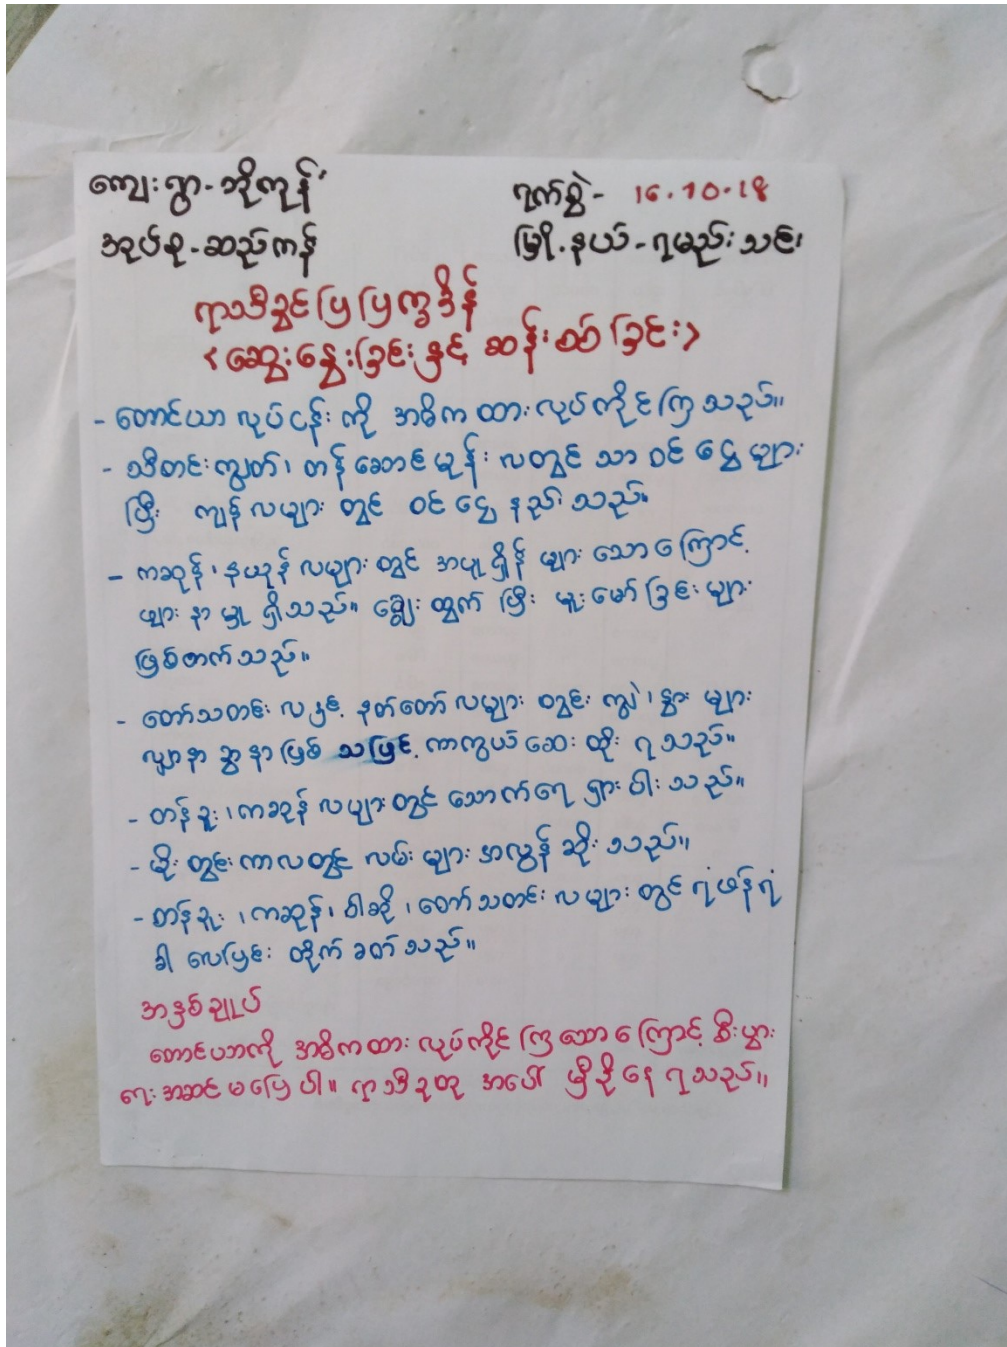 ကျေးရွာ-ဘိုကုန်း
ရက်စွဲ- 16.10.18
အုပ်စု-ဆည်ကန်
မြို့နယ်-ရမည်းသင်း
ရာသီခွင်ပြပြက္ခဒိန်
<ဆွေးနွေးခြင်းနှင့် ဆန်းစစ်ခြင်း>
- တောင်ယာ လုပ်ငန်း ကို အဓိက ထား လုပ်ကိုင်ကြသည်။
- သီတင်းကျွတ်၊ တန်ဆောင်မုန်း လတွင် သာ ဝင်ငွေ များ
ပြီး ကျန်လများ တွင် ဝင်ငွေ နည်းသည်။
- ကဆုန်၊ နယုန် လများ တွင် အပူရှိန် များ သောကြောင့်
ဖျားနာမှု ရှိသည်။ ချွေးထွက် ပြီး မူးမော်ခြင်းများ
ဖြစ်တတ်သည်။
- တော်သလင်း လနှင့် နတ်တော် လများ တွင် ကျွဲ၊ နွား များ
လျှာနာ ခွာနာ ဖြစ် သဖြင့် ကာကွယ်ဆေး ထိုး ရသည်။
- တန်ခူး၊ ကဆုန် လများတွင် သောက်ရေ ရှားပါးသည်။
- မိုးတွင်းကာလတွင် လမ်းများ အလွန်ဆိုးသည်။
- တန်ခူး၊ ကဆုန်၊ ဝါဆို၊ တော်သလင်း လများ တွင် ရံဖန်ရံ
ခါ လေပြင်း တိုက်ခတ်သည်။
အနှစ်ချုပ်
တောင်ယာကို အဓိကထား လုပ်ကိုင်ကြသောကြောင့် စီးပွား
ရေး အဆင်မပြေပါ။ ရာသီဥတု အပေါ် မှီခိုနေရသည်။